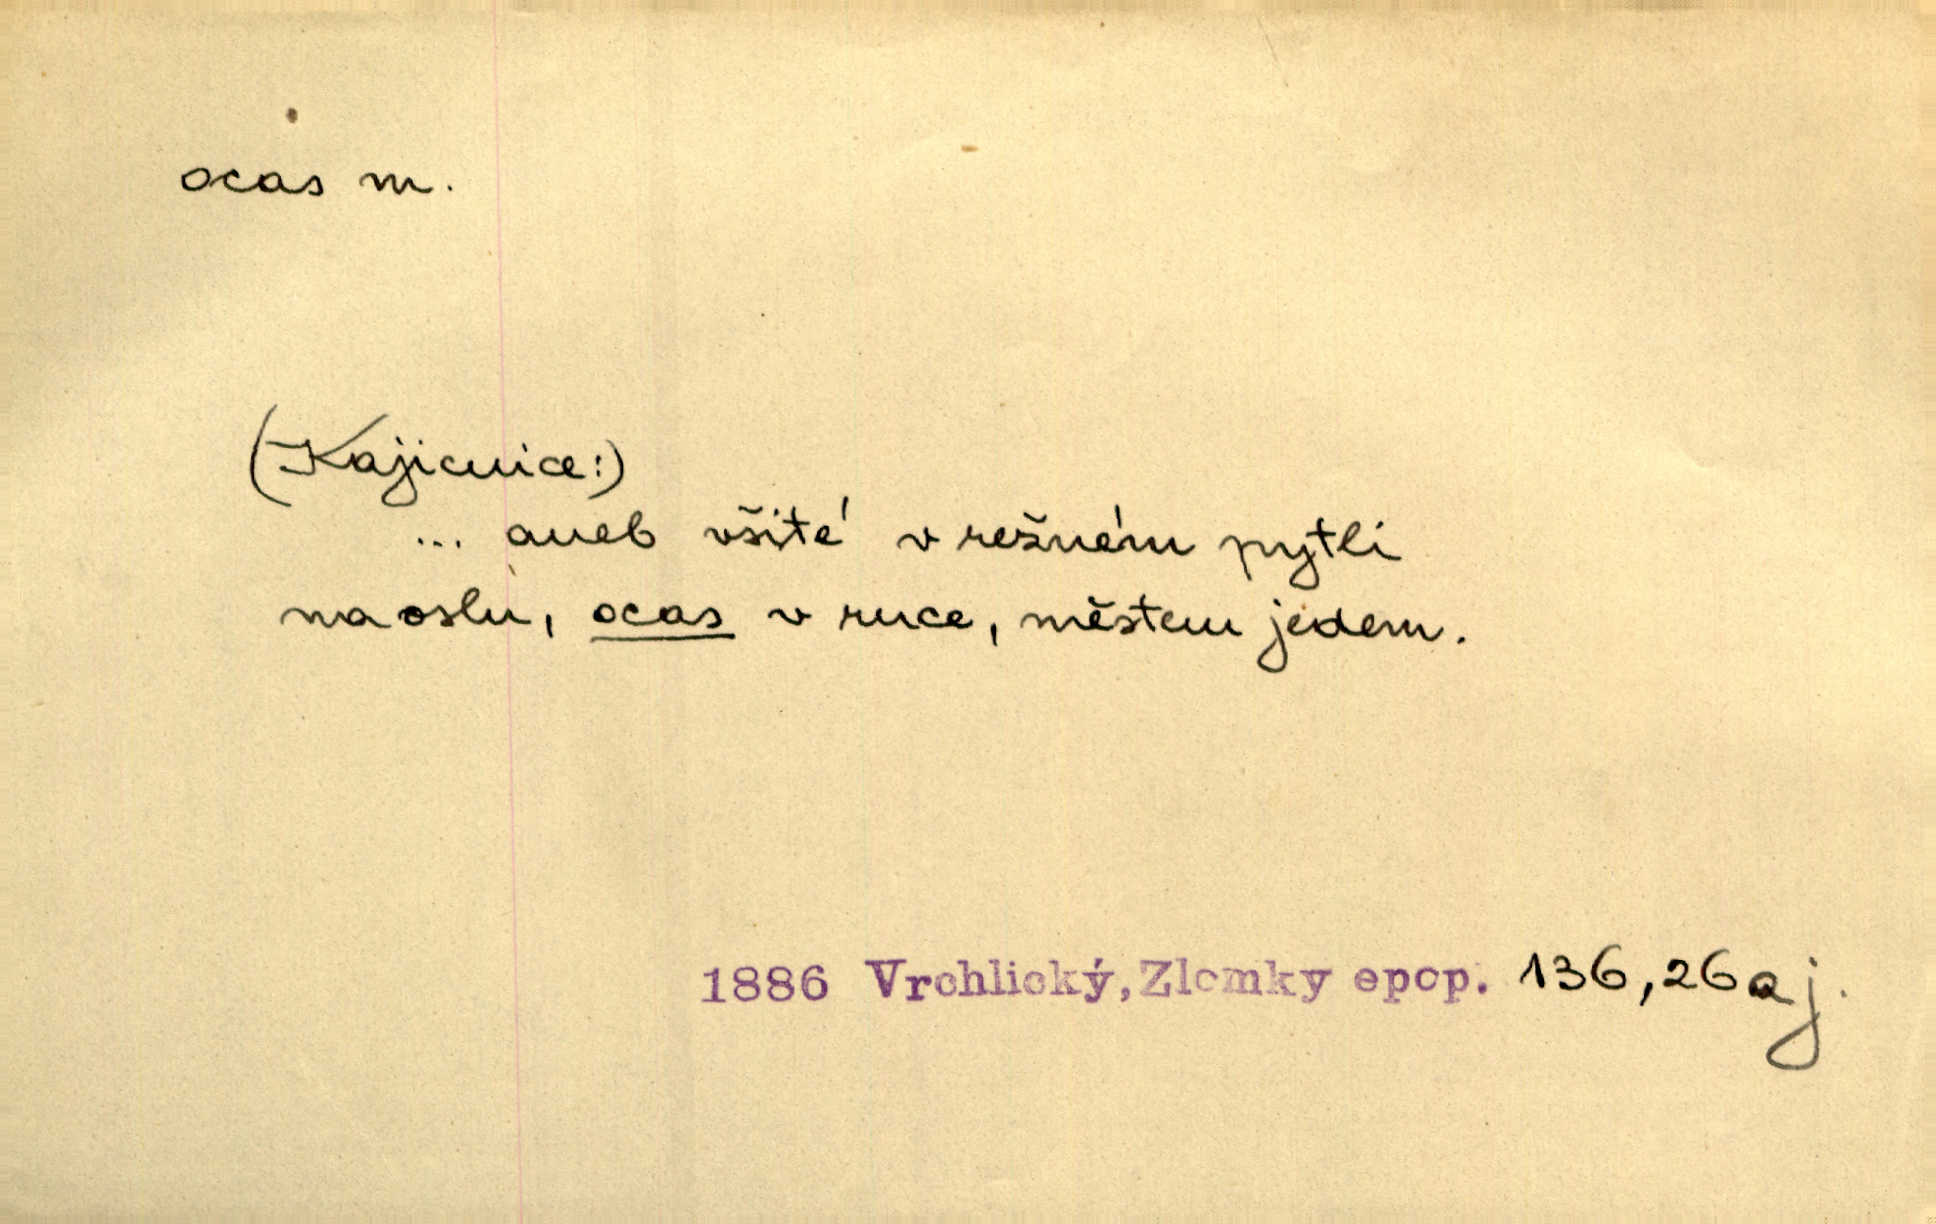 ocas m.
(Kajicnice:)
... aneb všité v režném pytli
na oslu, ocas v ruce, městem jedem.
1886 Vrchlický, Zlomky epop. 136, 26 aj.